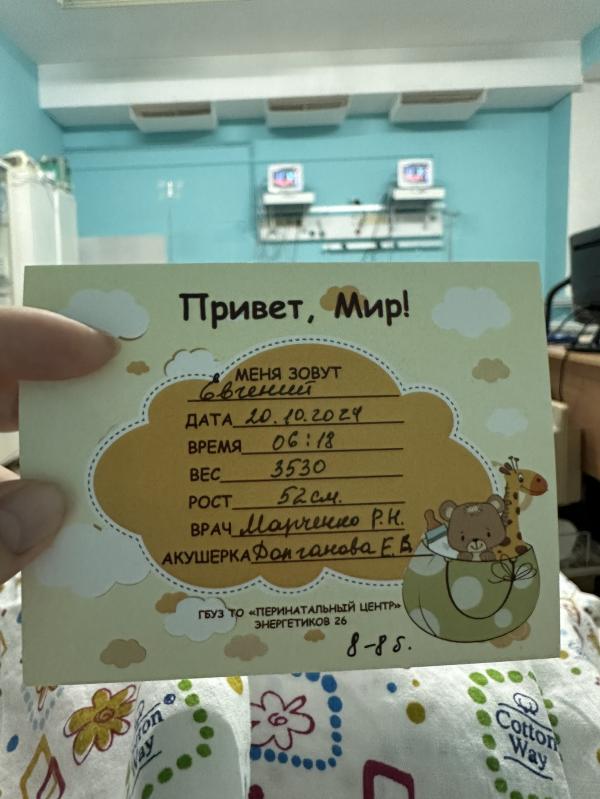 Привет, Мир!
МЕНЯ ЗОВУТ
Евгений
ДАТА 20.10.2024
ВРЕМЯ 06:18
ВЕС 3530
РОСТ 52 см.
ВРАЧ Марченко Р.Н.
АКУШЕРКА Долганова Е.В.
ГБУЗ ТО «ПЕРИНАТАЛЬНЫЙ ЦЕНТР»
ЭНЕРГЕТИКОВ 26
8-8б.
Cotton
Way
Cotton
Way